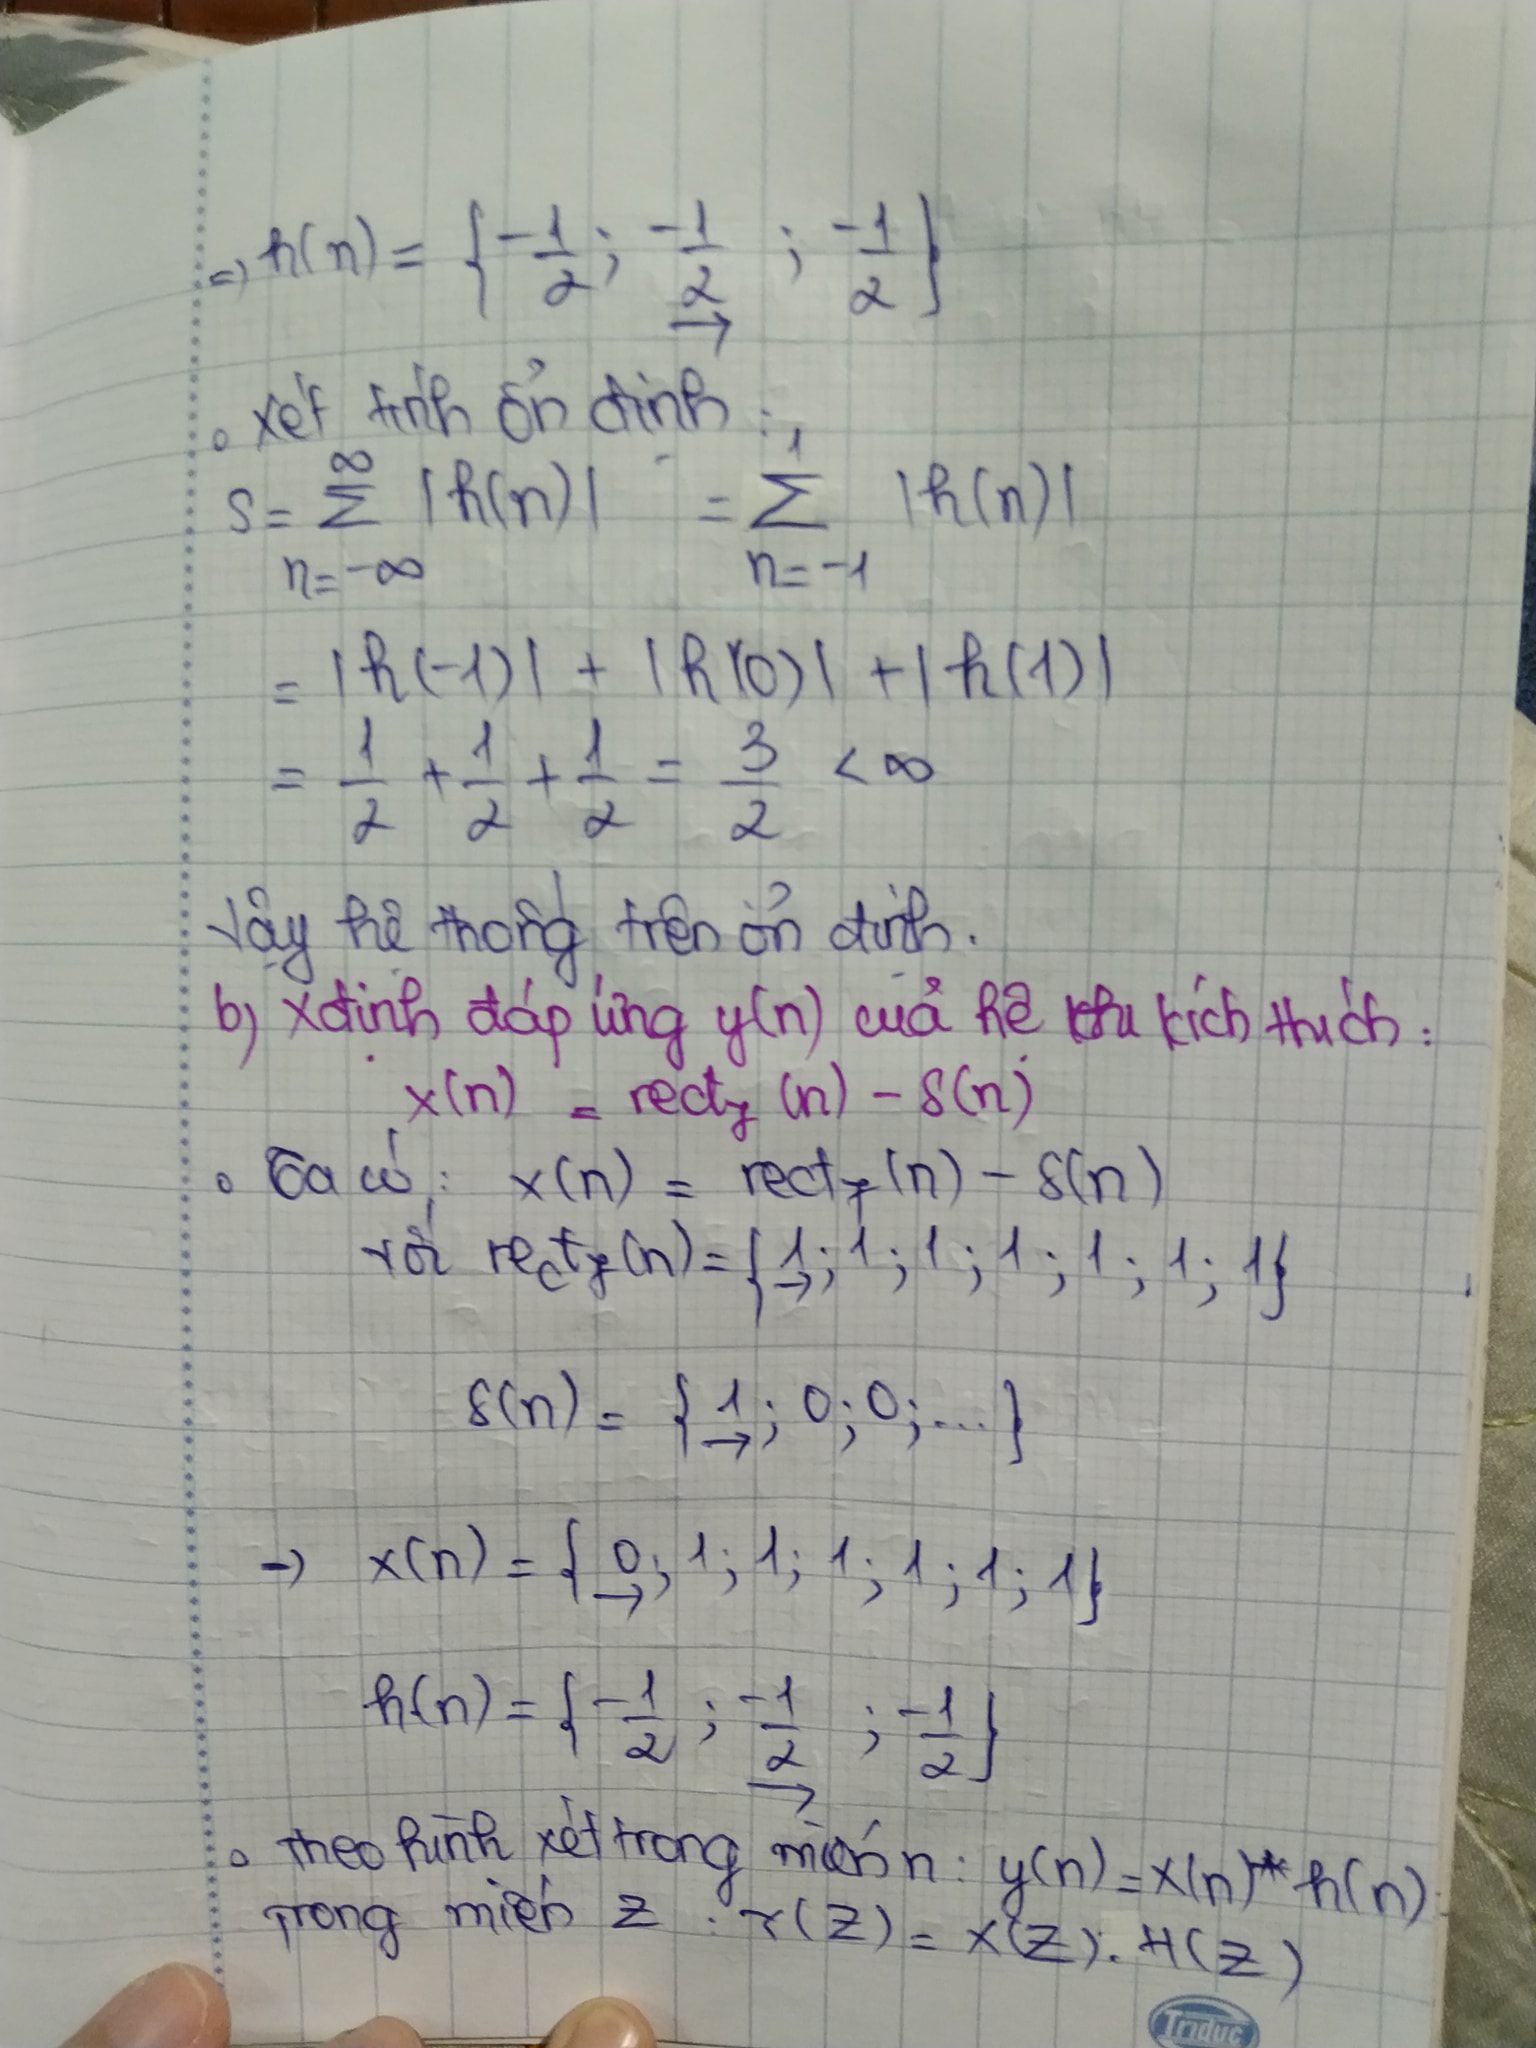 => h(n) = {-1/2; -1/2; -1/2}
→
o xét tính ổn định:
S = ∞ Σ n=-∞ |h(n)| = 1 Σ n=-1 |h(n)|
= |h(-1)| + |h(0)| + |h(1)|
= 1/2 + 1/2 + 1/2 = 3/2 < ∞
Vậy hệ thống trên ổn định.
b) Xđịnh đáp ứng y(n) của hệ khi kích thích:
x(n) = rect7(n) - δ(n)
o Ta có: x(n) = rect7(n) - δ(n)
với rect7(n) = {1; 1; 1; 1; 1; 1; 1}
→
δ(n) = {1; 0; 0; ...}
→
→ x(n) = {0; 1; 1; 1; 1; 1; 1}
→
h(n) = {-1/2; -1/2; -1/2}
→
o Theo hình xét trong miền n: y(n) = x(n) * h(n)
Trong miền Z: Y(Z) = X(Z). H(Z)
Triduc